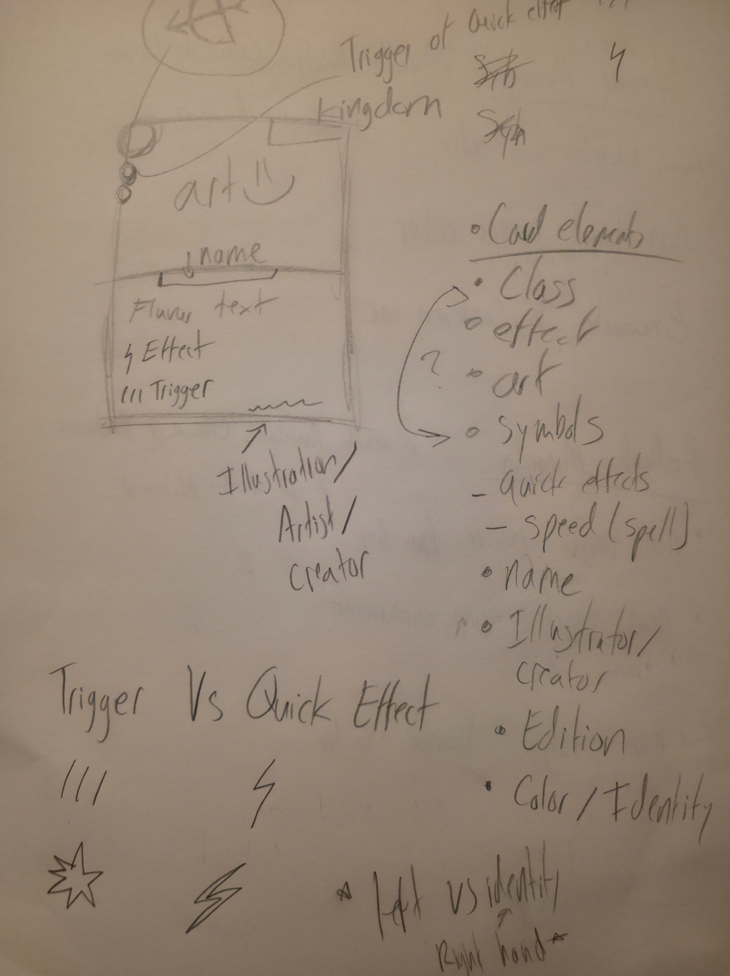 Trigger or Quick effect
kingdom
art
name
Flavor text
Effect
/// Trigger
Illustration/
Artist/
creator
• Card elements
• Class
• effect
?
• art
• Symbols
- Quick effects
- speed (spell)
• name
• Illustrator/
creator
• Edition
• Color/Identity
Trigger Vs Quick Effect
///
* left vs identity
Right hand *